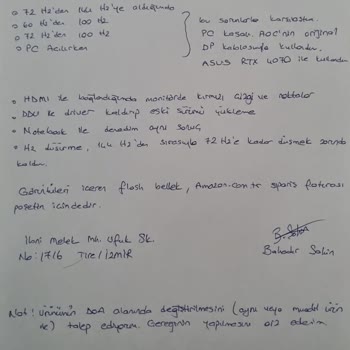 o 72 Hz'den 144 Hz'ye aldığımda
o 60 Hz'den 100 Hz
o 72 Hz'den 100 Hz
o PC Açılırken
bu sorunlarla karşılaştım.
PC kasan. AOC'nin orijinal
DP kablosuyla kullandım,
ASUS RTX 4070 ile kullandım
• HDMI ile bağladığımda monitörde kırmızı çizgi ve noktalar
• DDU ile driver kaldırıp eski sürümü yükleme
• Notebook ile denedim aynı sonuç
• Hz düşürme, 144 Hz'den sırasıyla 72 Hz'e kadar düşmek zorunda
kaldım.
Görüntüleri içeren flash bellek, Amazon.com.tr sipariş faturası
poşetin içindedir.
Melek Mh. Ufuk Sk.
No: 17/6 Tire/İZMİR
Bahadır Şahin
Not: Ürünün DOA alanında değiştirilmesini (aynı veya muadil ürün
ile) talep ediyorum. Gereğinin yapılmasını arz ederim.